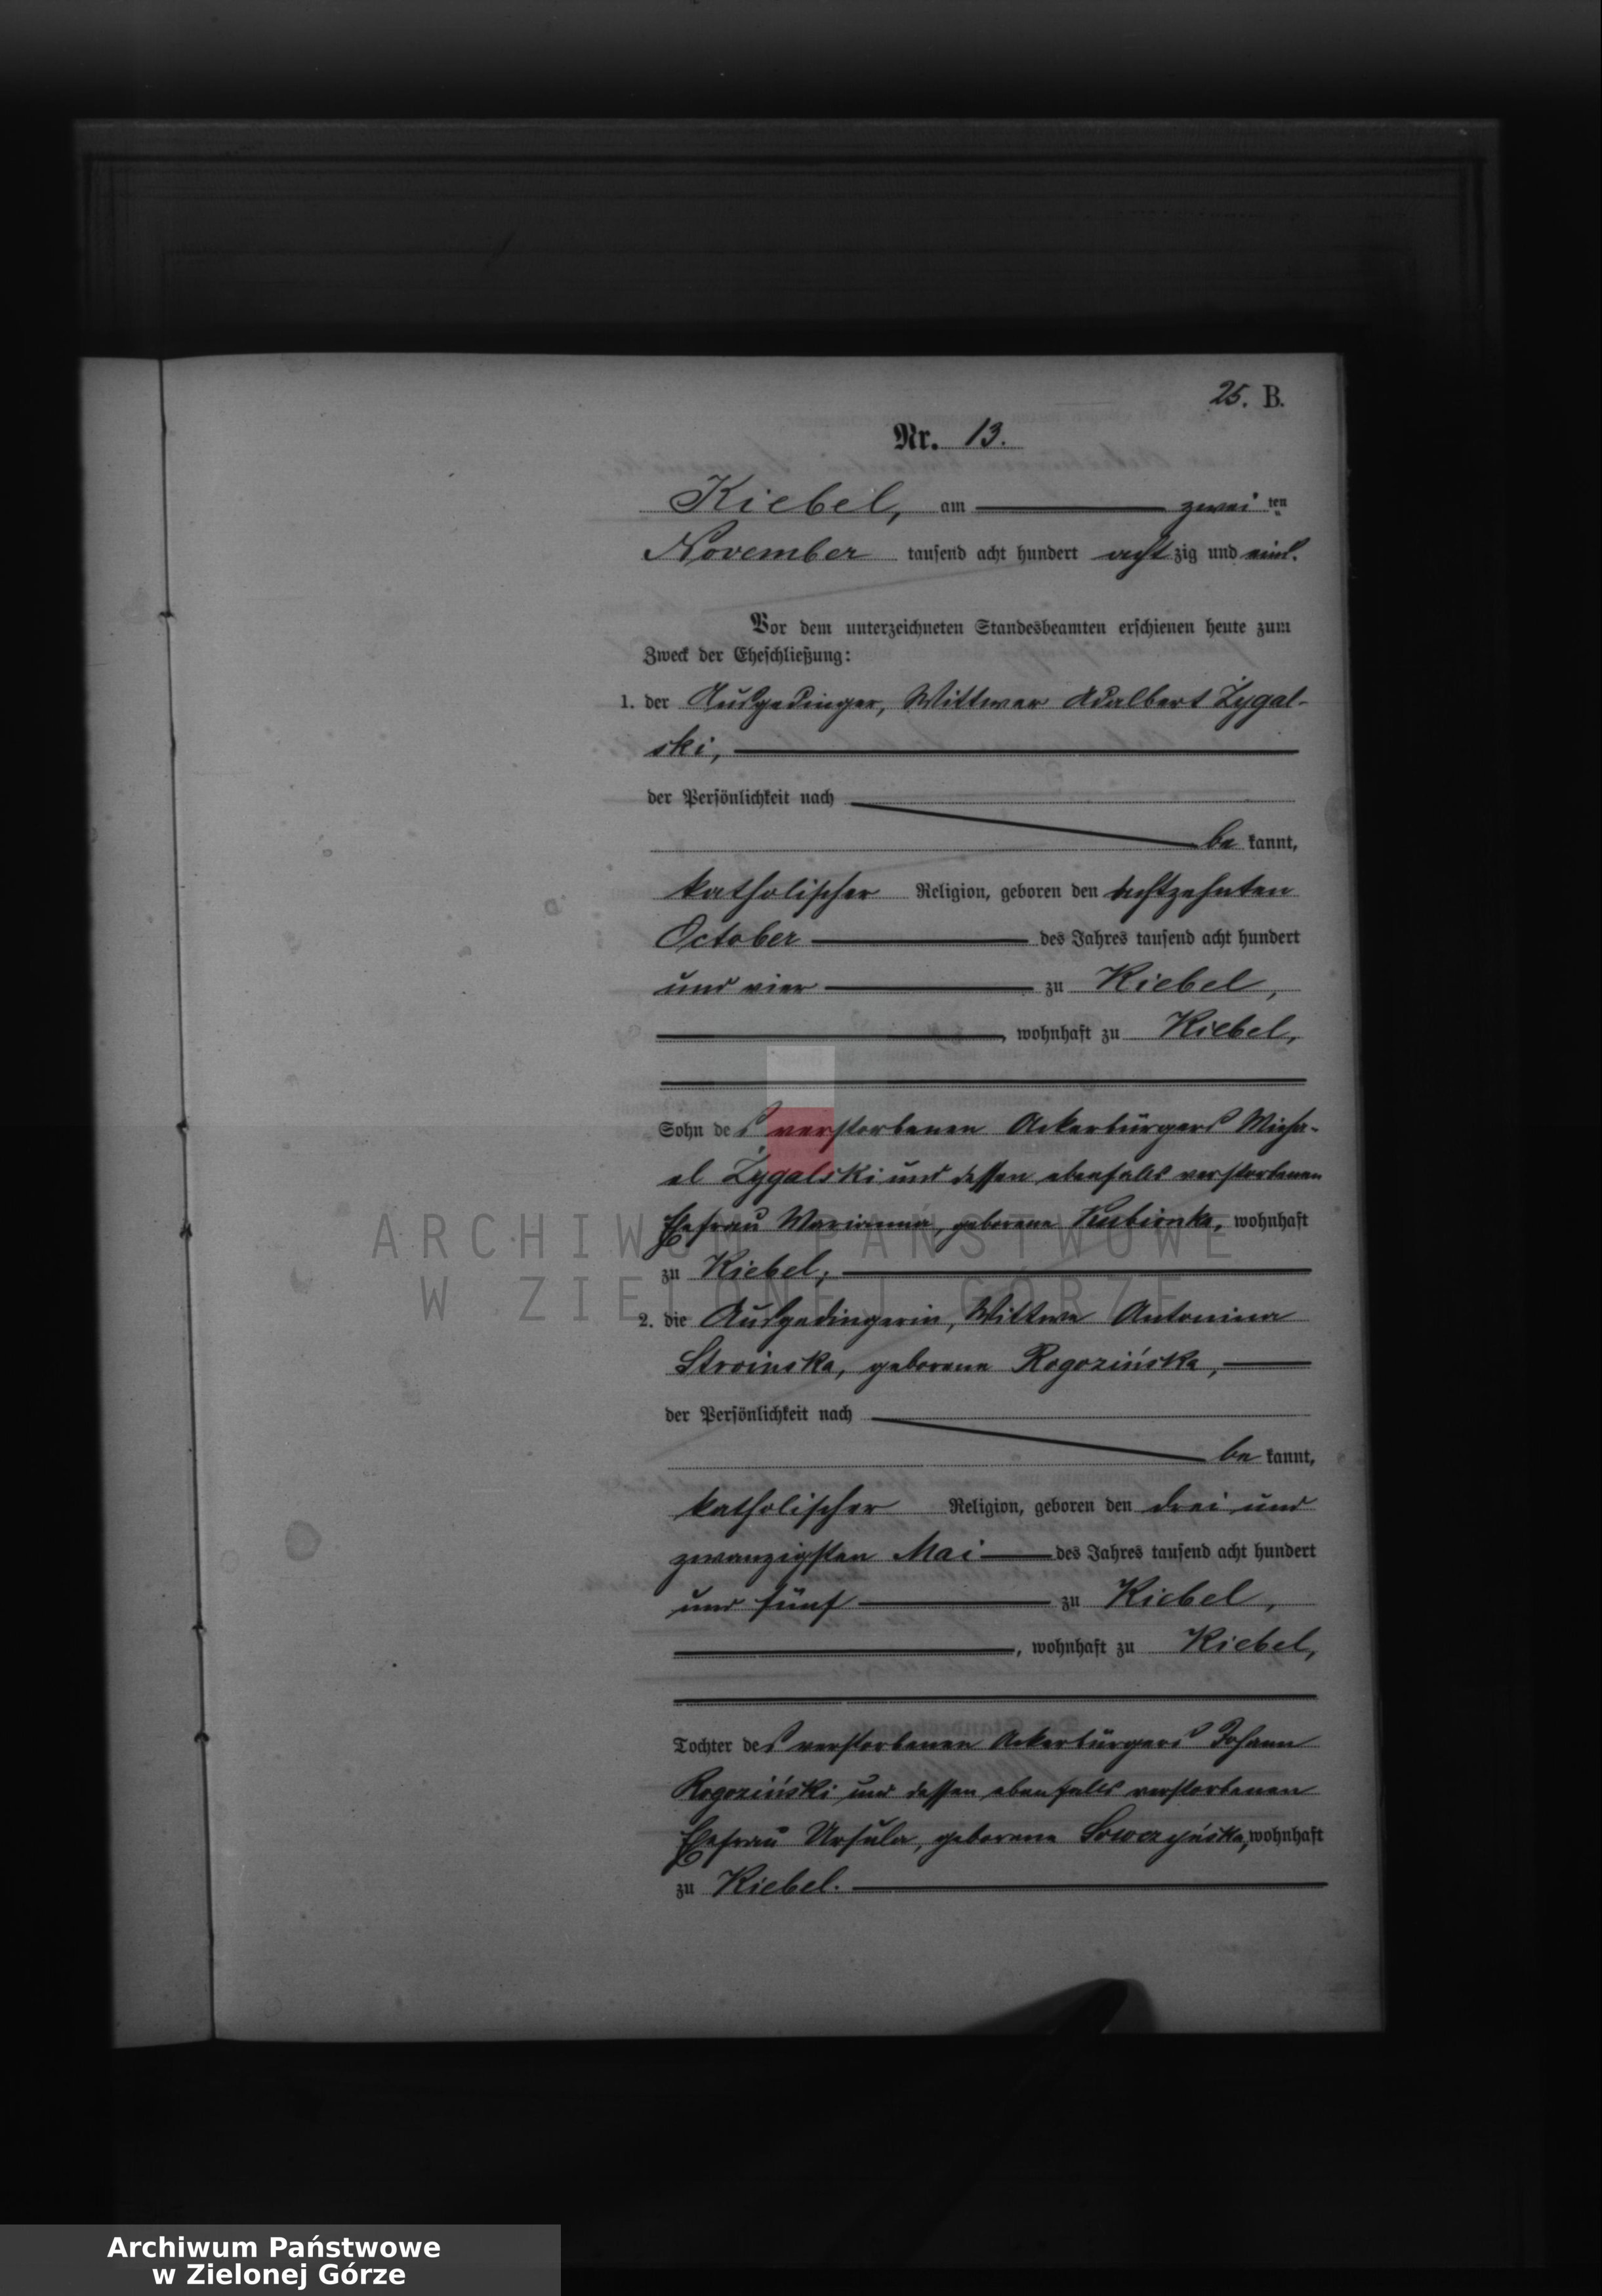 25. B.
Nr. 13.
Kiebel, am zwei ten
November tausend acht hundert acht zig und eins.
Vor dem unterzeichneten Standesbeamten erschienen heute zum
Zweck der Eheschließung:
1. der Ausgedinger, Wittwer Adalbert Żygal-
ski,
der Persönlichkeit nach
be kannt,
katholischer Religion, geboren den achtzehnten
October des Jahres tausend acht hundert
und vier zu Kiebel,
, wohnhaft zu Kiebel,
Sohn des verstorbenen Ackerbürgers Micha-
el Żygalski und dessen ebenfalls verstorbenen
Ehefrau Marianna, geborene wohnhaft
zu Kiebel;
2. die Ausgedingerin, Wittwe Antonina
Stroinska, geborene Rogozińska,
der Persönlichkeit nach
be kannt,
katholischer Religion, geboren den drei und
zwanzigsten Mai des Jahres tausend acht hundert
und fünf zu Kiebel,
, wohnhaft zu Kiebel,
Tochter des verstorbenen Ackerbürgers Johann
Rogoziński und dessen ebenfalls verstorbenen
Ehefrau Ursula, geborene wohnhaft
zu Kiebel.
ARCHIWUM PAŃSTWOWE
W ZIELONEJ GÓRZE
Archiwum Państwowe
w Zielonej Górze